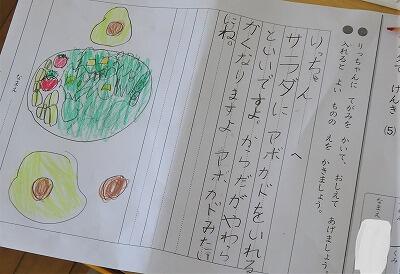 げんき (5)
なまえ
くみ
りっちゃんに てがみを かいて、おしえて あげましょう。
入れると よい ものの えを かきましょう。
りっちゃん へ
サラダに アボカドをいれる
といいですよ。からだがやわら
かくなりますよ。アボカドみたい
にね。
なまえ